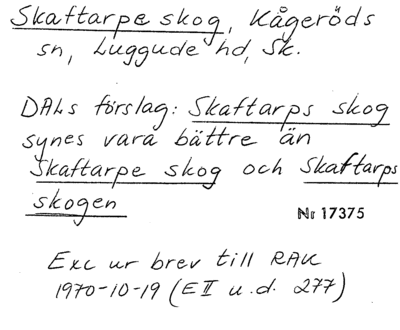 Skaftarpe skog, Kågeröds
sn, Luggude hd, Sk.
DALs förslag: Skaftarps skog
synes vara bättre än
Skaftarpe skog och Skaftarps
skogen
Nr 17375
Exc ur brev till RAK
1970-10-19 (E II u.d. 277)